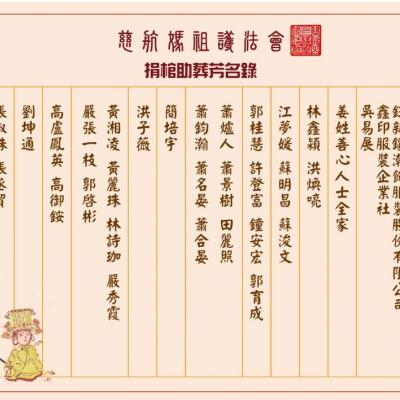 慈航媽祖護法會
捐棺助葬芳名錄
鑫印服裝企業社
吳易展
姜姓善心人士全家
林鑫穎 洪煥喨
江夢媛 蘇明昌 蘇浚文
郭桂慧 許登富 鐘安宏 郭育成
蕭爐人 蕭景樹 田麗照
蕭鈞瀚 蕭名晏 蕭合晏
簡培宇
洪子薇
黃湘凌 黃麗珠 林詩珈 嚴秀霞
嚴張一枝 郭啓彬
高盧鳳英 高御銨
劉坤通